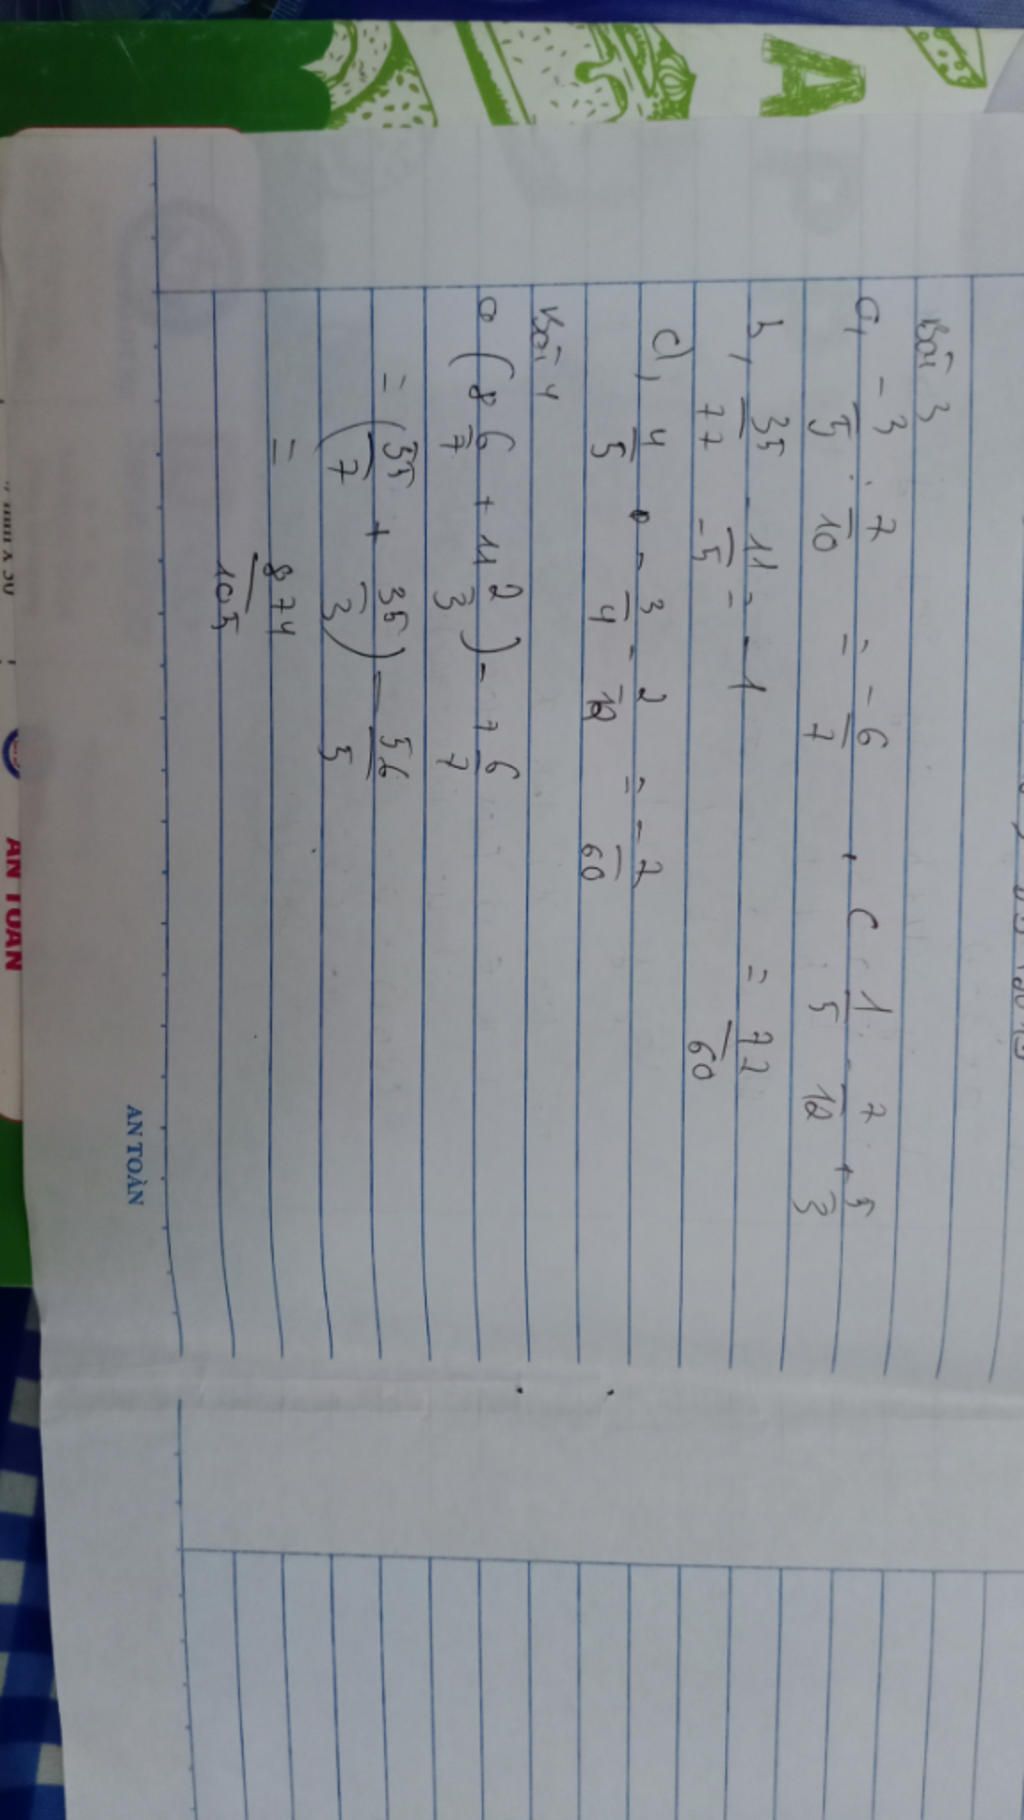 Bài 3
a, -3/5 . 7/10 = -6/7 , c 1/5 . 7/12 + 5/3
b, 35/77 . 11/-5 = -1 = 72/60
d, 4/5 . -3/4 - 2/12 = -2/60
Bài 4
a (8 6/7 + 11 2/3) - 7 6/7
= (55/7 + 35/3) - 56/5
= 874/105
AN TOÀN
AN TOÀN